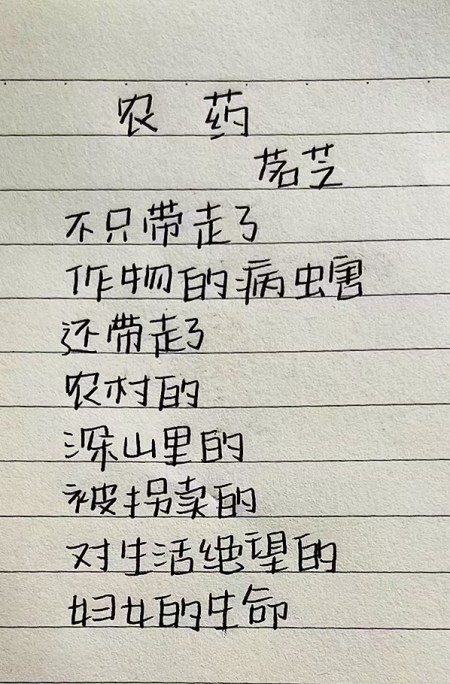 农药
茗芝
不只带走了
作物的病虫害
还带走了
农村的
深山里的
被拐卖的
对生活绝望的
妇女的生命